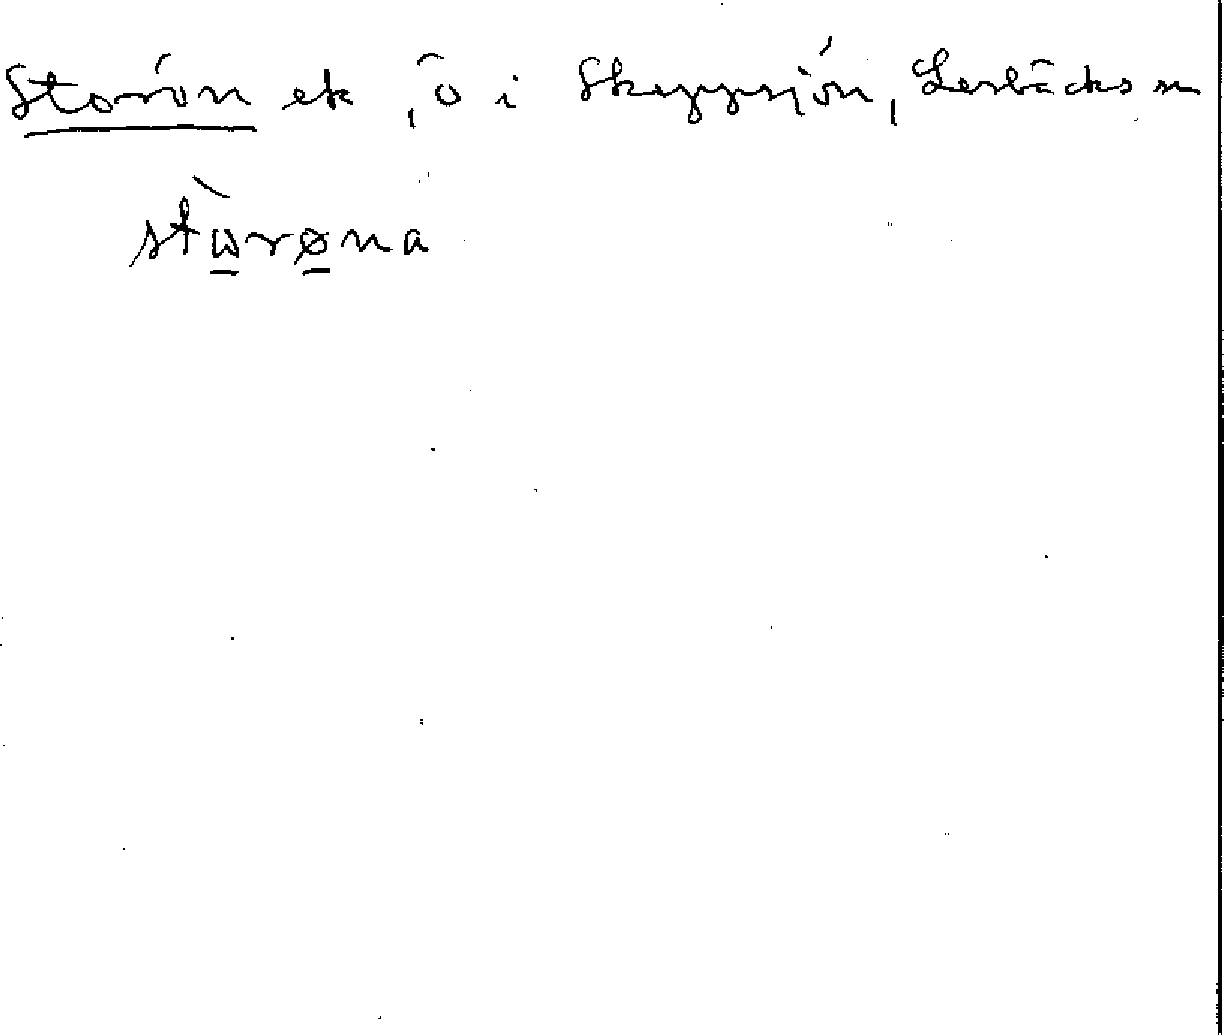 Storön ek, ö i Skeppsjön, Lerbäcks sn
stωrøna